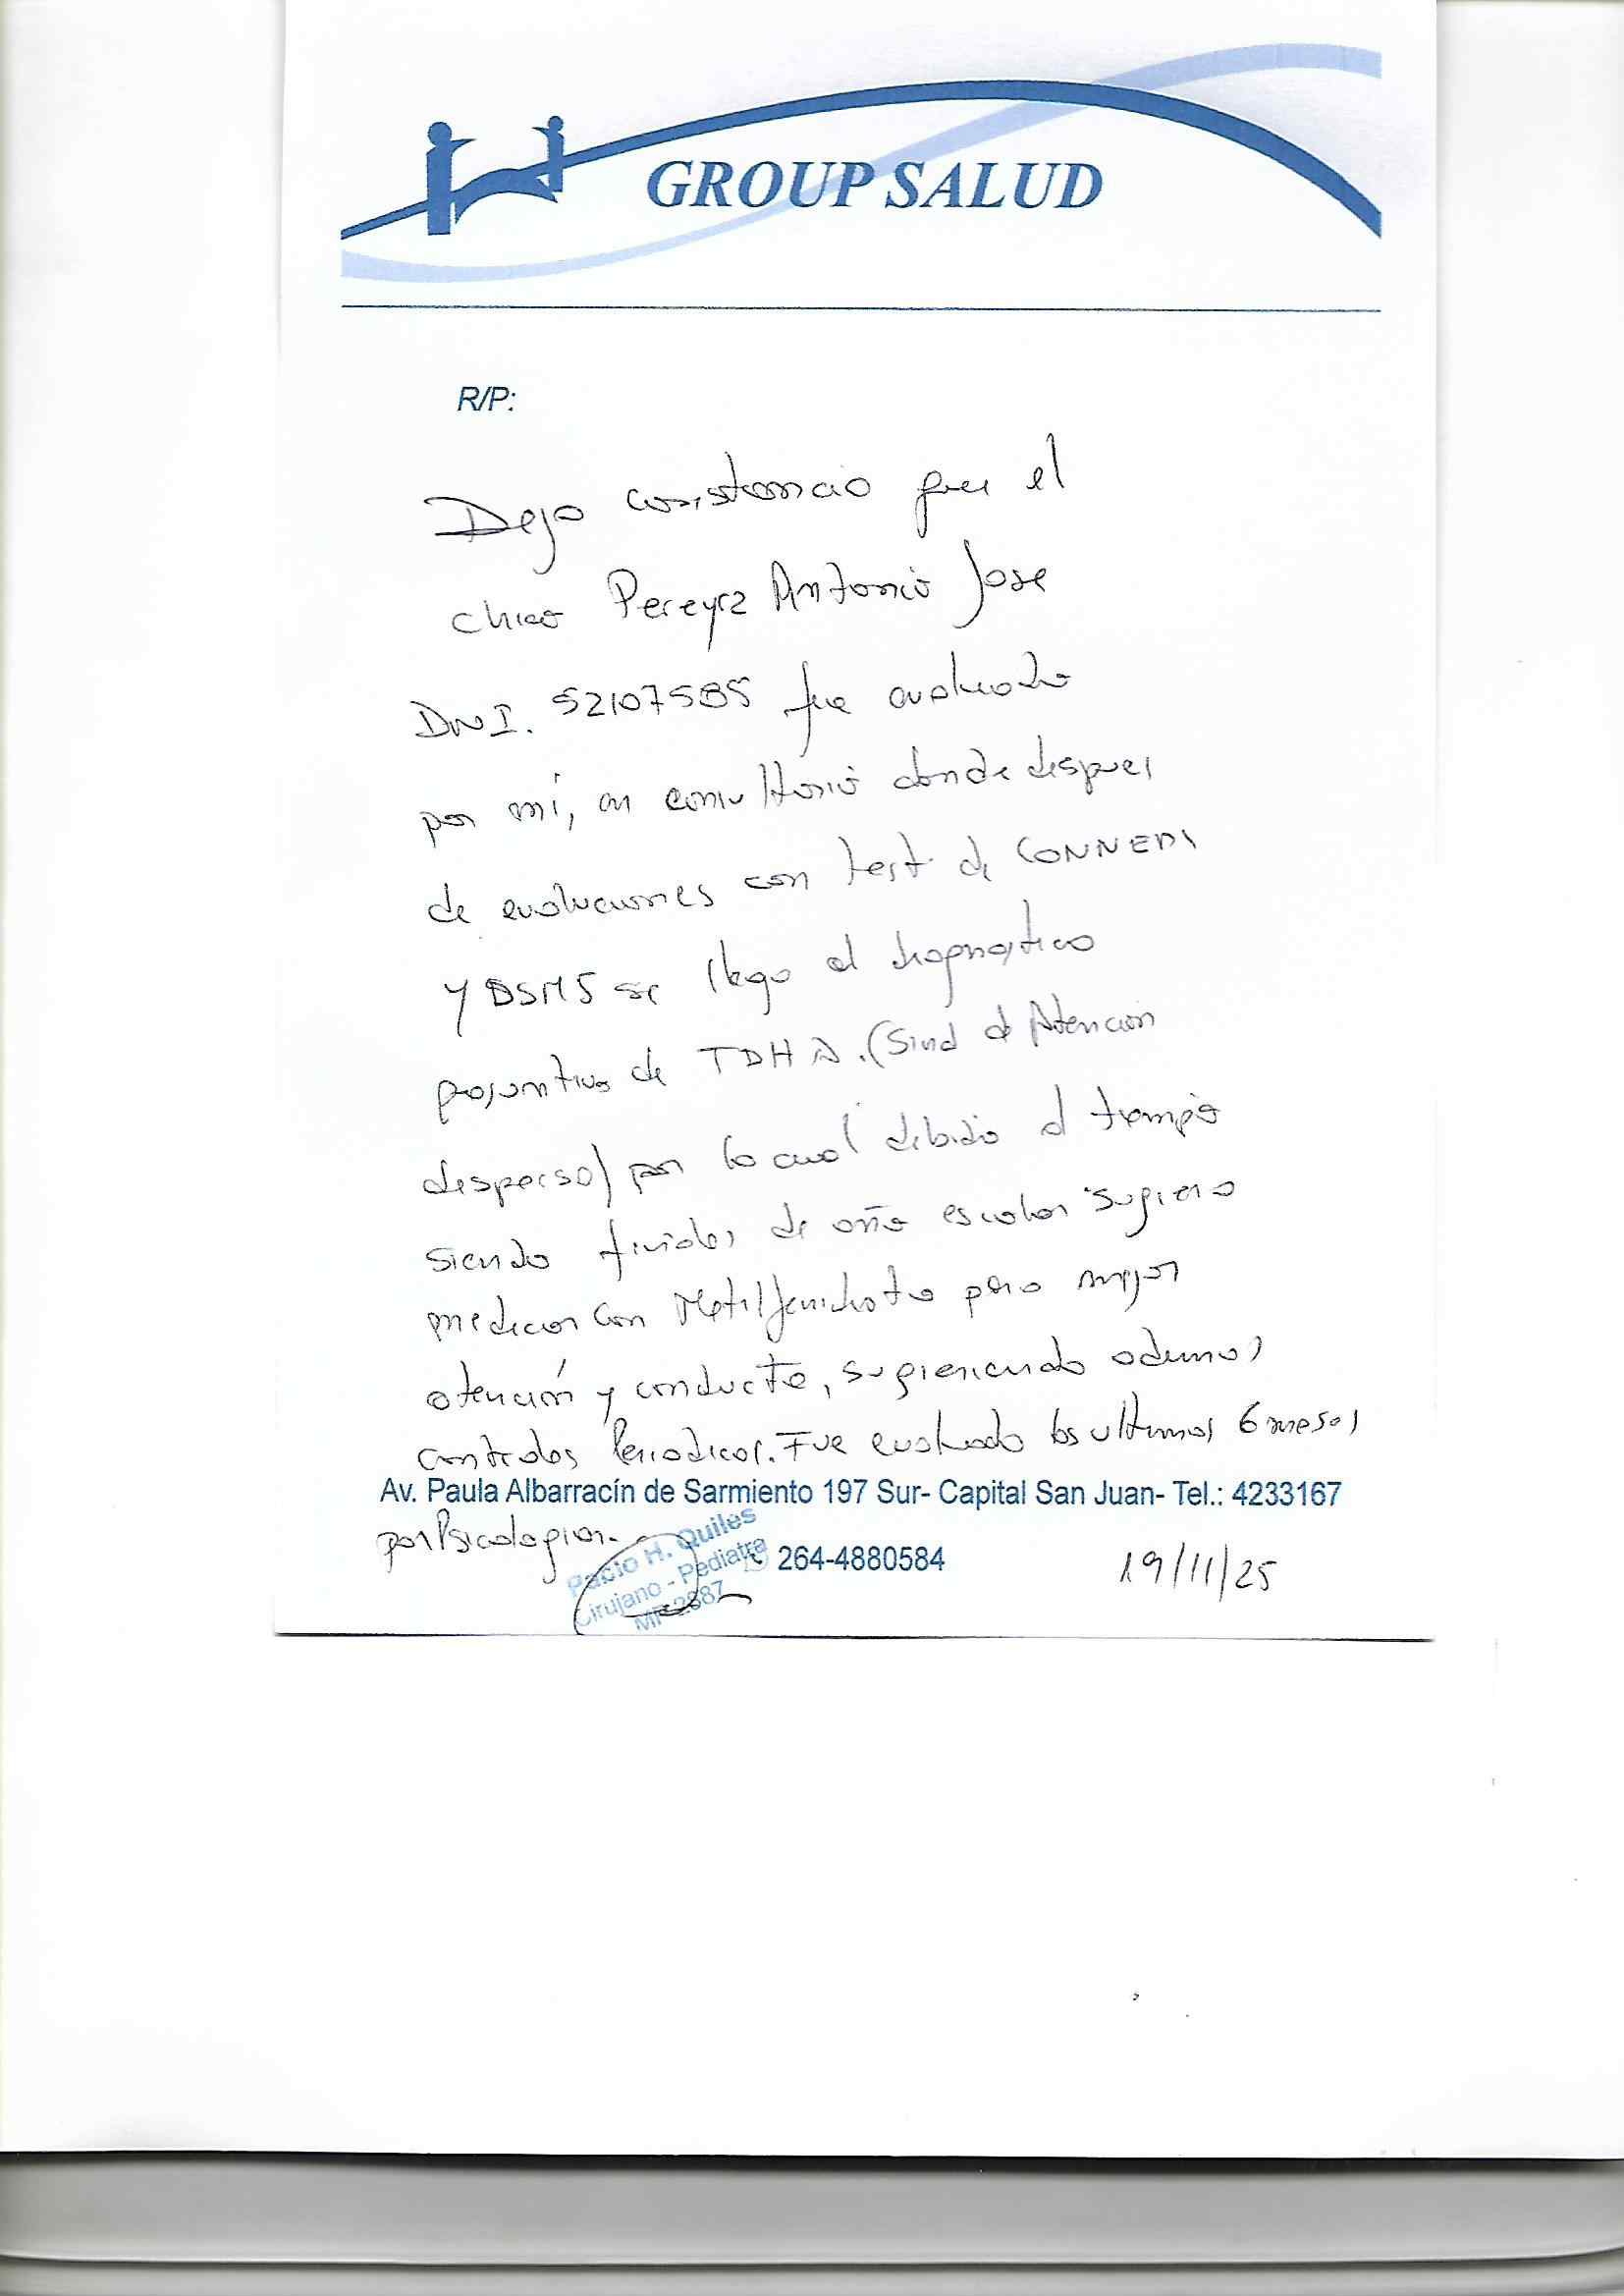 GROUP SALUD
R/P:
Dejo constancia que el
chico Pereyra Antonio Jose
DNI. 52107585 fue evaluado
por mí, en consultorio donde despues
de evaluaciones con test de CONNERS
y DSM5 se llego al diagnostico
presuntivo de TDHA. (Sind de Atencion
disperso) por lo cual debido al tiempo
siendo finales de año escolar sugiero
medicar con Metilfenidato para mejor
atención y conducta, sugieriendo ademas
controles Periodicos. Fue evaluado los ultimos 6 meses
Av. Paula Albarracín de Sarmiento 197 Sur- Capital San Juan- Tel.: 4233167
por Psicologia.
H. Quiles
Cirujano - Pediatra
264-4880584
19/11/25